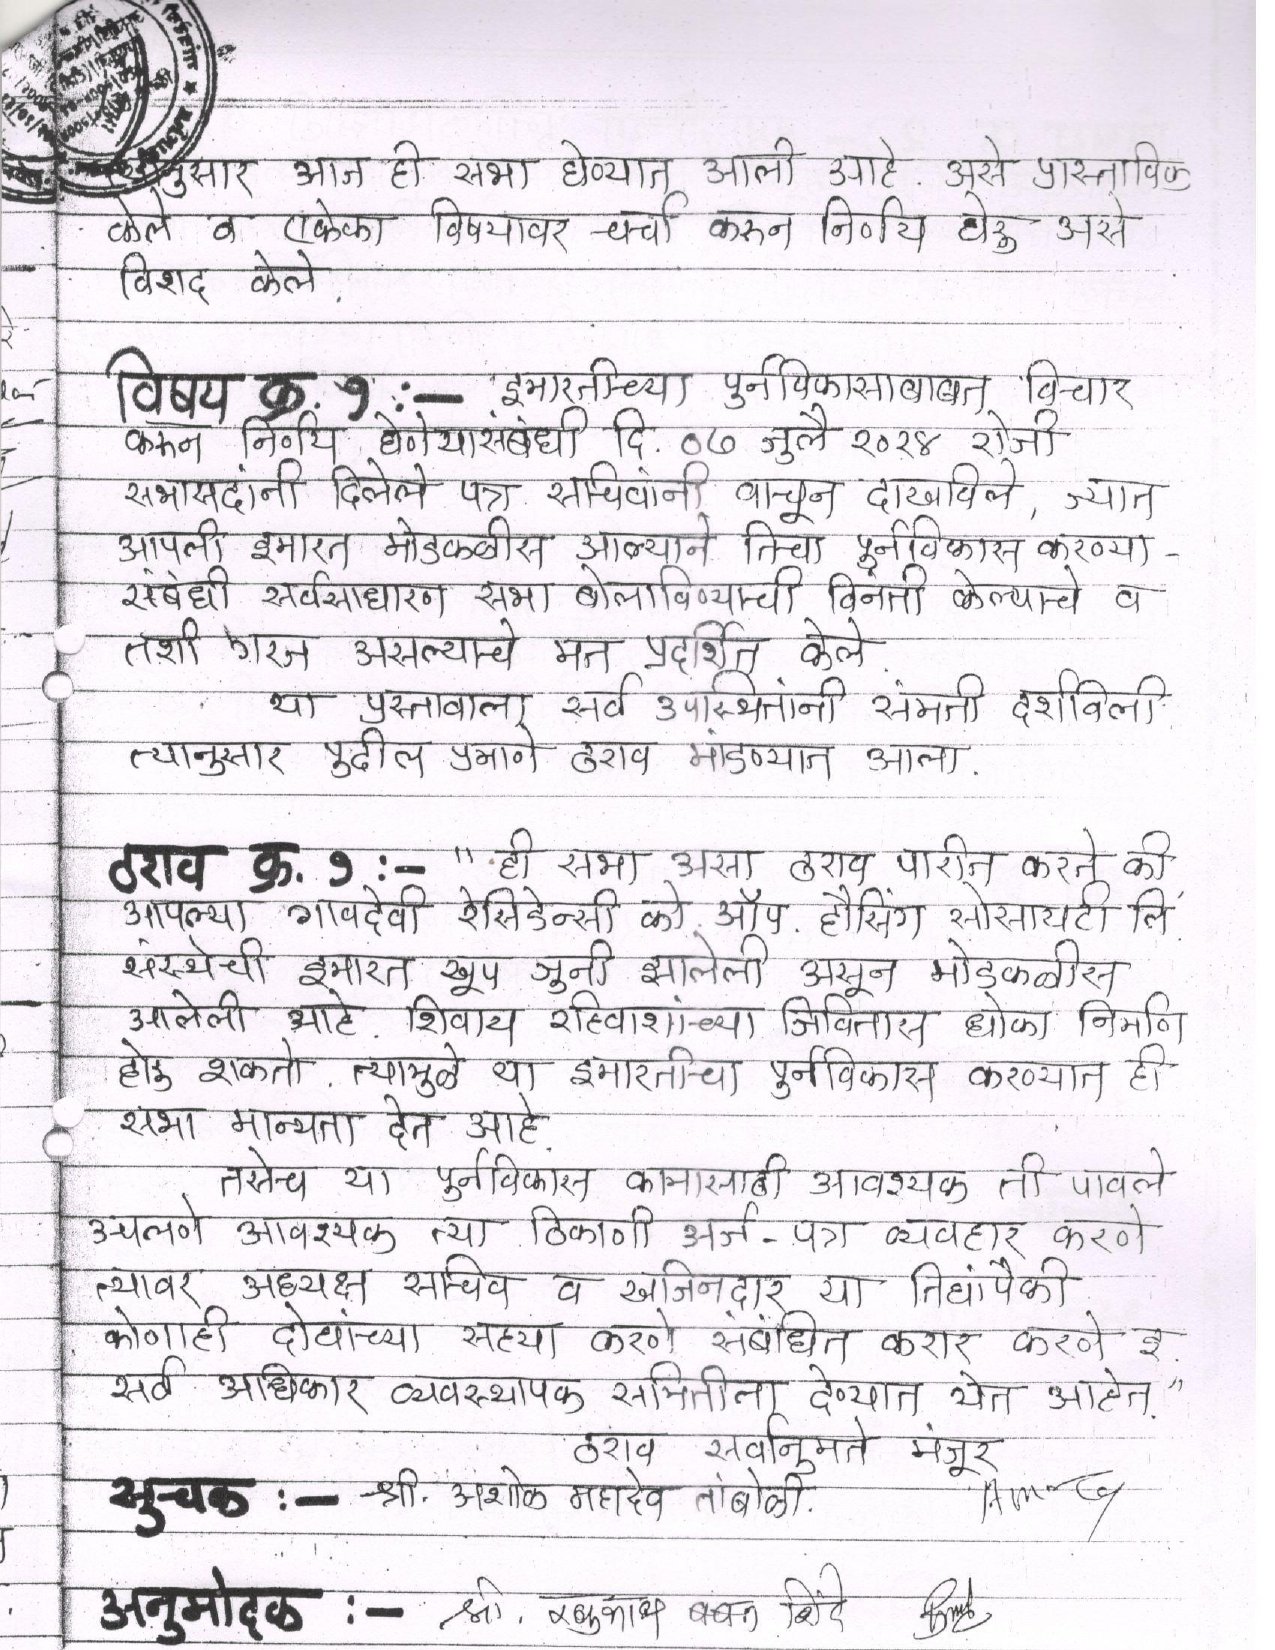 नुसार आज ही सभा घेण्यात आली आहे. असे प्रास्ताविक
केले व एकेका विषयावर चर्चा करून निर्णय घेऊ असे
विशद केले.
विषय क्र. १ :- इमारतीच्या पुर्नविकासाबाबत विचार
करून निर्णय घेणेयासंबंधी दि. ०७ जुलै २०२४ रोजी
सभासदांनी दिलेले पत्र सचिवांनी वाचून दाखविले, ज्यात
आपली इमारत मोडकळीस आल्याने तिचा पुर्नविकास करण्या-
संबंधी सर्वसाधारण सभा बोलाविण्याची विनंती केल्याचे व
तशी गरज असल्याचे मत प्रदर्शित केले.
या प्रस्तावाला सर्व उपस्थितांनी संमती दर्शविली
त्यानुसार पुढील प्रमाणे ठराव मांडण्यात आला.
ठराव क्र. १ :- " ही सभा असा ठराव पारीत करते की
आपल्या गावदेवी रेसिडेन्सी को. ऑप. हौसिंग सोसायटी लि.
संस्थेची इमारत खूप जुनी झालेली असून मोडकळीस
आलेली आहे. शिवाय रहिवाशांच्या जिवितास धोका निर्माण
होऊ शकतो. त्यामुळे या इमारतीचा पुर्नविकास करण्यात ही
सभा मान्यता देत आहे.
तसेच या पुर्नविकास कामासाठी आवश्यक ती पावले
उचलणे आवश्यक त्या ठिकाणी अर्ज-पत्र व्यवहार करणे
त्यावर अध्यक्ष सचिव व खजिनदार या तिघांपैकी
कोणाही दोघांच्या सह्या करणे संबंधित करार करणे इ.
सर्व अधिकार व्यवस्थापक समितीला देण्यात येत आहेत."
ठराव सर्वानुमते मंजूर
सुचक :- श्री. अशोक महादेव तांबोळी.
अनुमोदक :- श्री. रघुनाथ बबन शिंदे